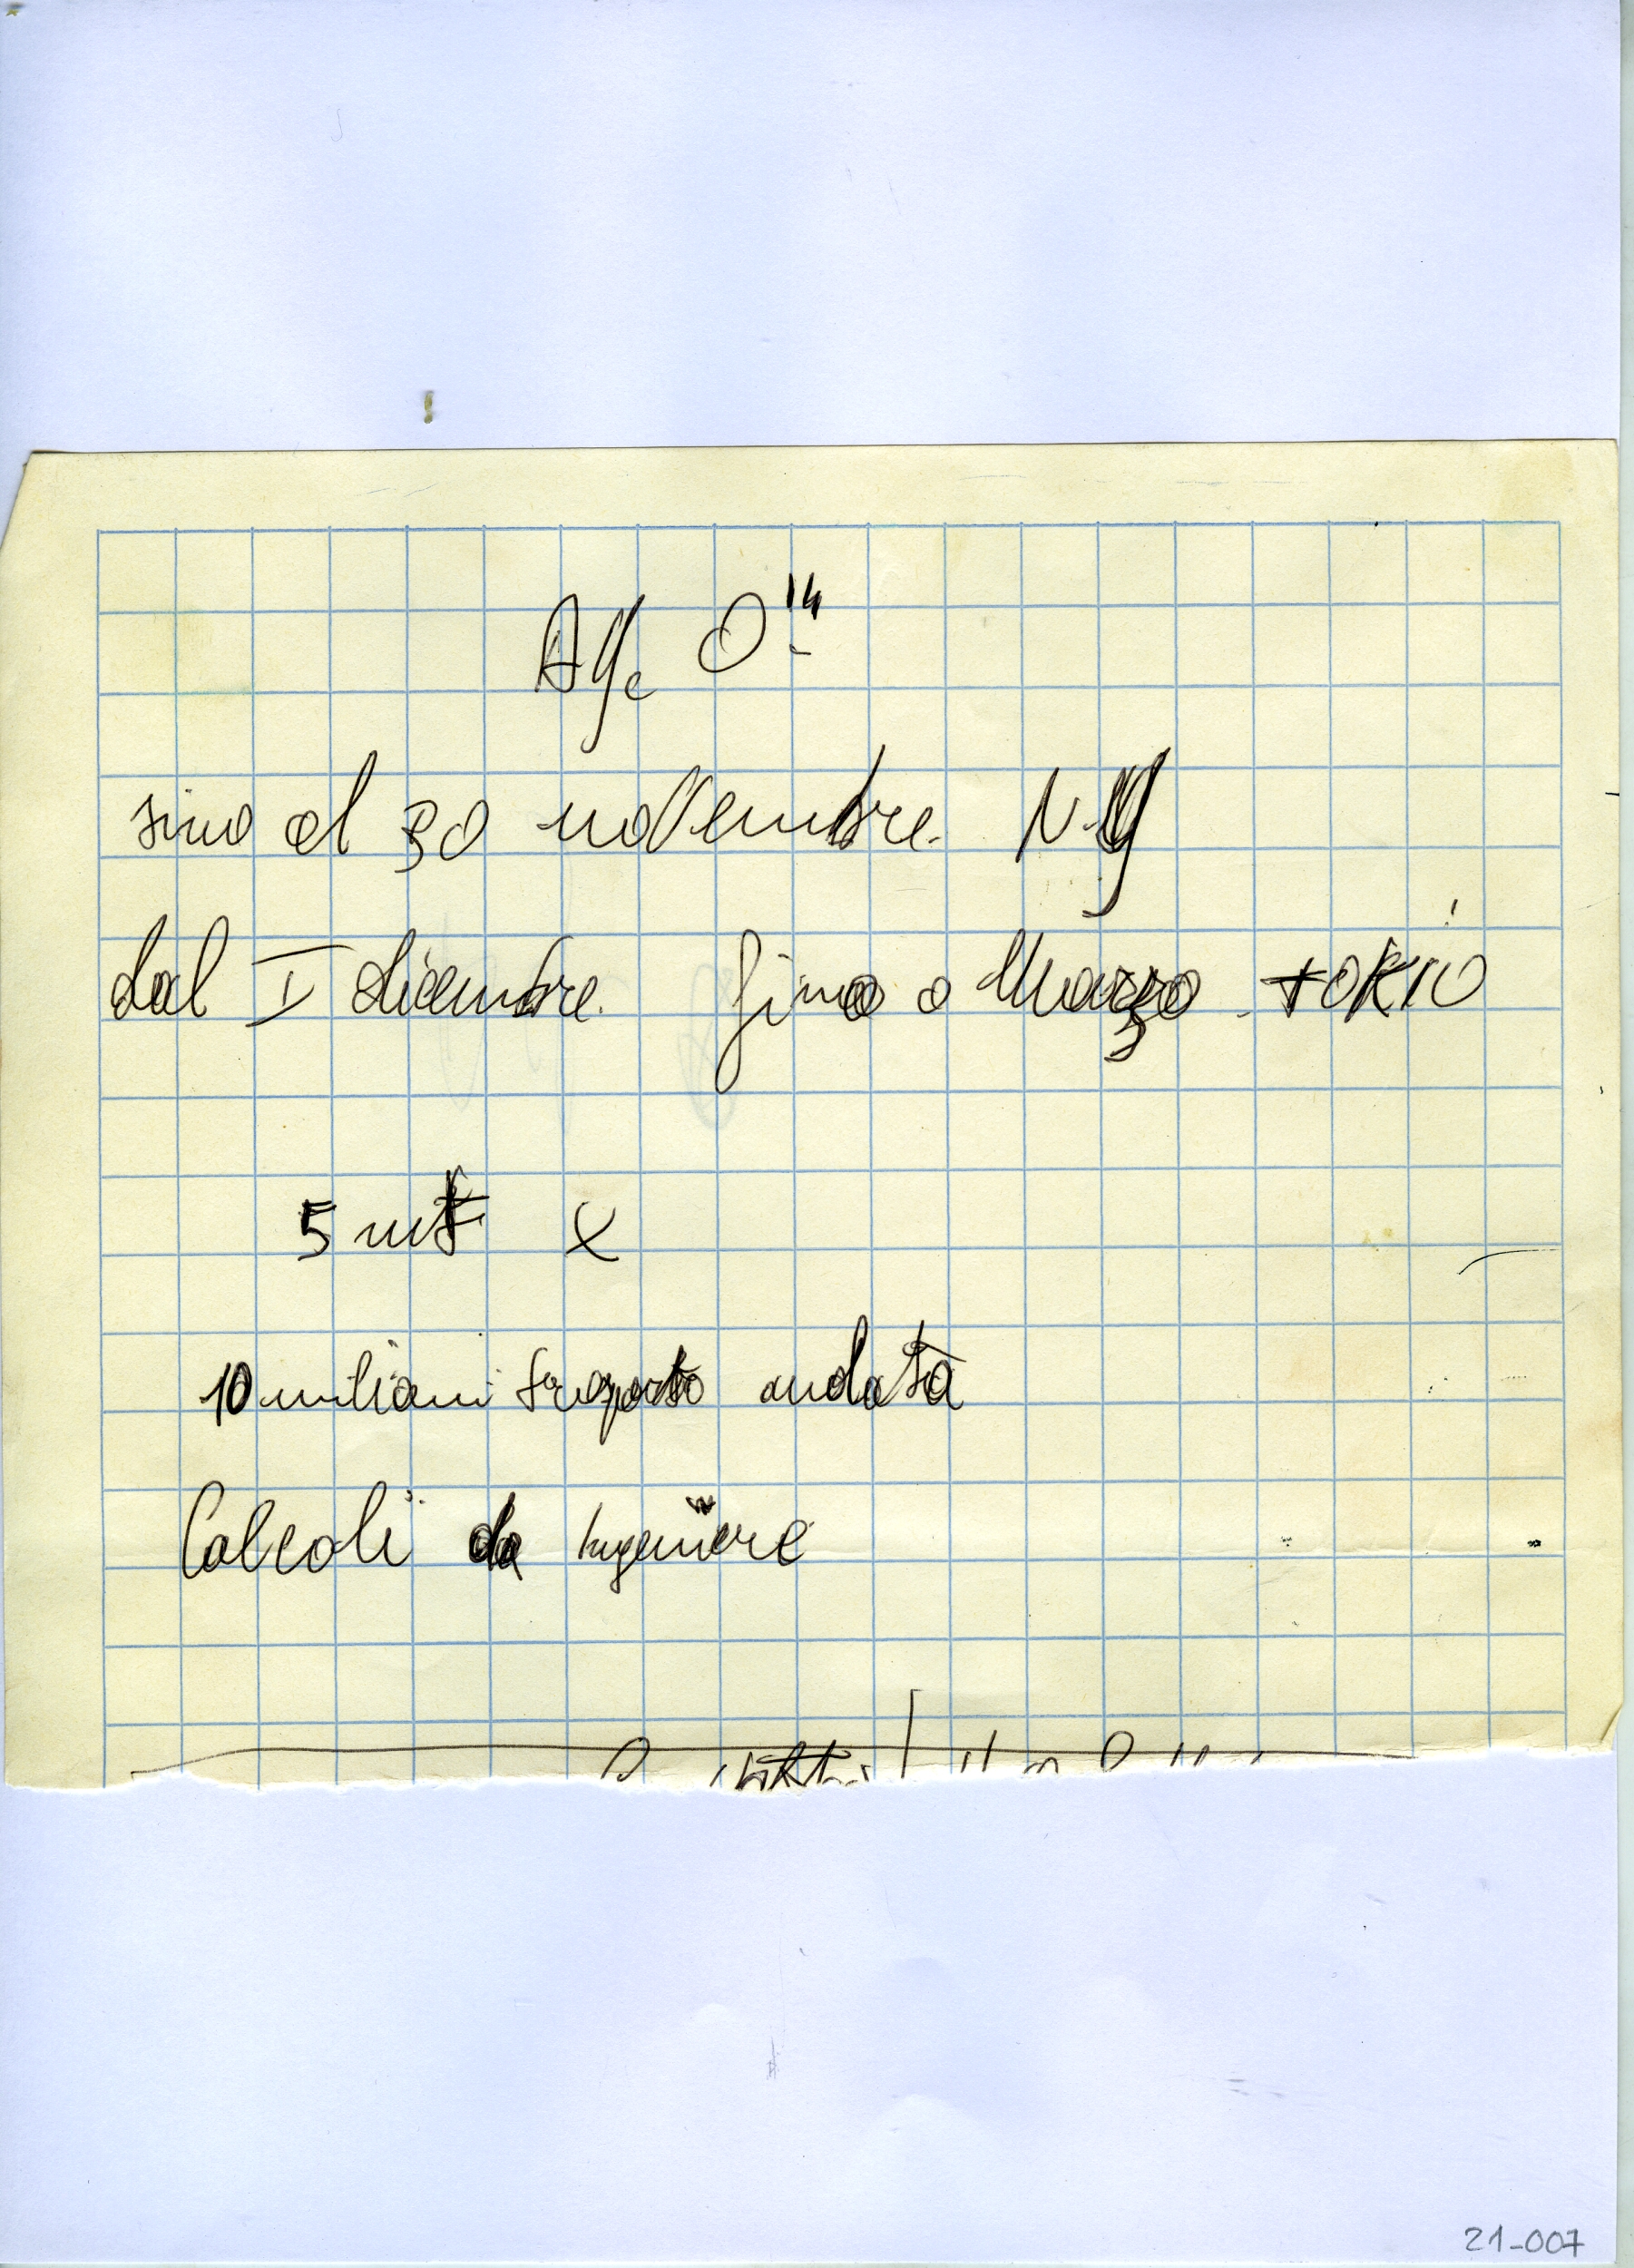 sino al 30 novembre. N.Y
dal I dicembre. fino a Marzo - TOKIO
5 mt X
10 milioni trasporto andata
Calcoli da Ingeniere
21-007